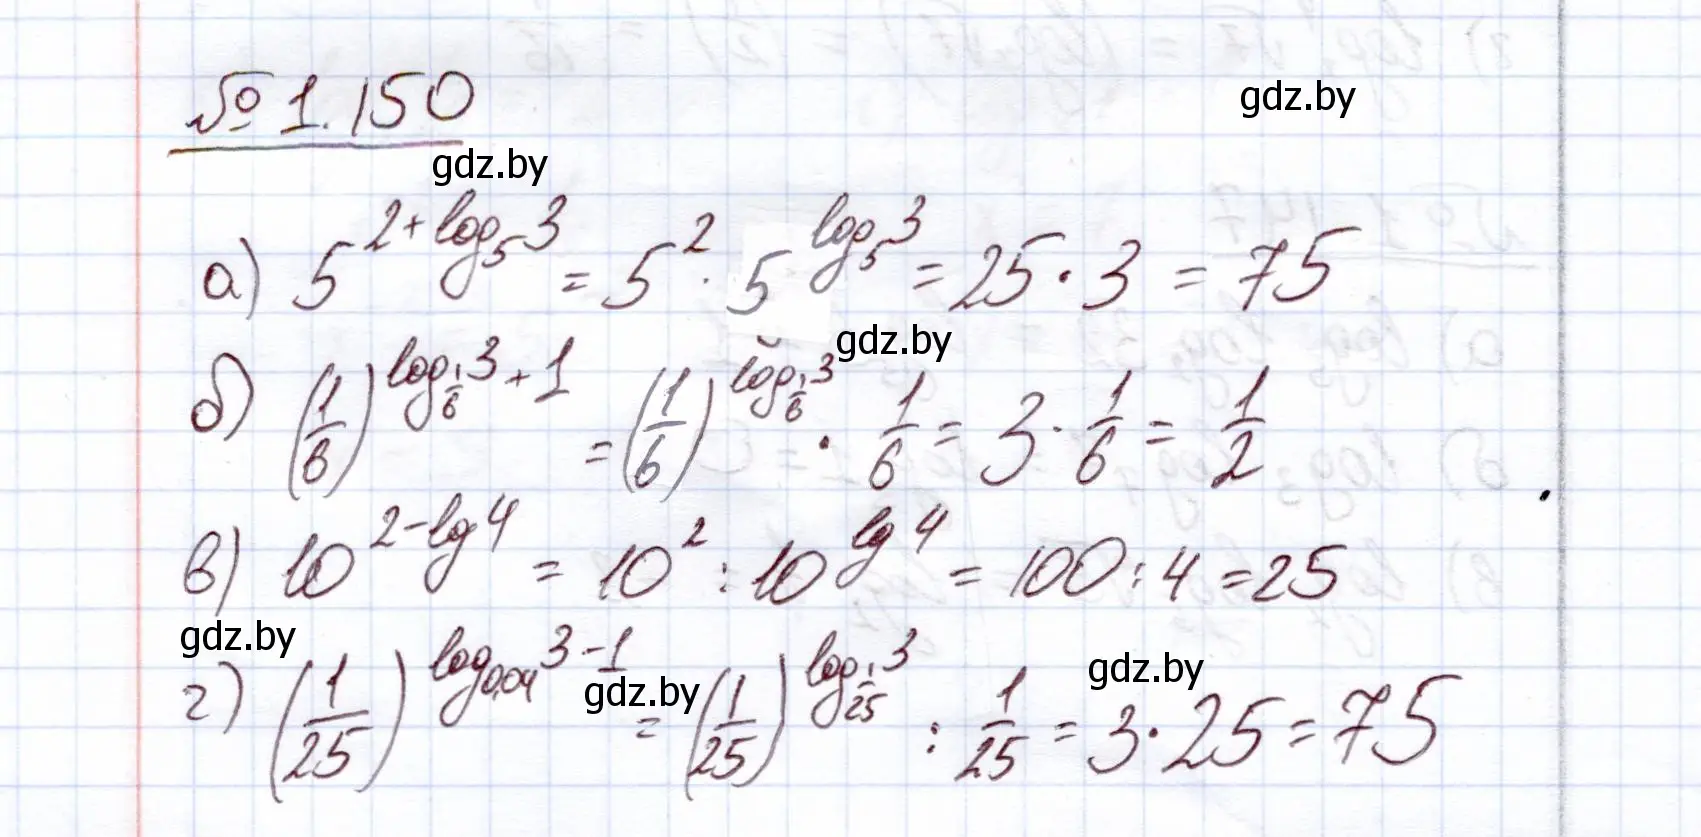 № 1.150
gdz.by
gdz.by
а) 5^{2+log_5 3} = 5^2 · 5^{log_5 3} = 25 · 3 = 75
gdz.by
б) (1/6)^{log_{1/6} 3 + 1} = (1/6)^{log_{1/6} 3} · 1/6 = 3 · 1/6 = 1/2
в) 10^{2-lg 4} = 10^2 : 10^{lg 4} = 100 : 4 = 25
gdz.by
gdz.by
gdz.by
г) (1/25)^{log_{0,04} 3 - 1} = (1/25)^{log_{1/25} 3} : 1/25 = 3 · 25 = 75